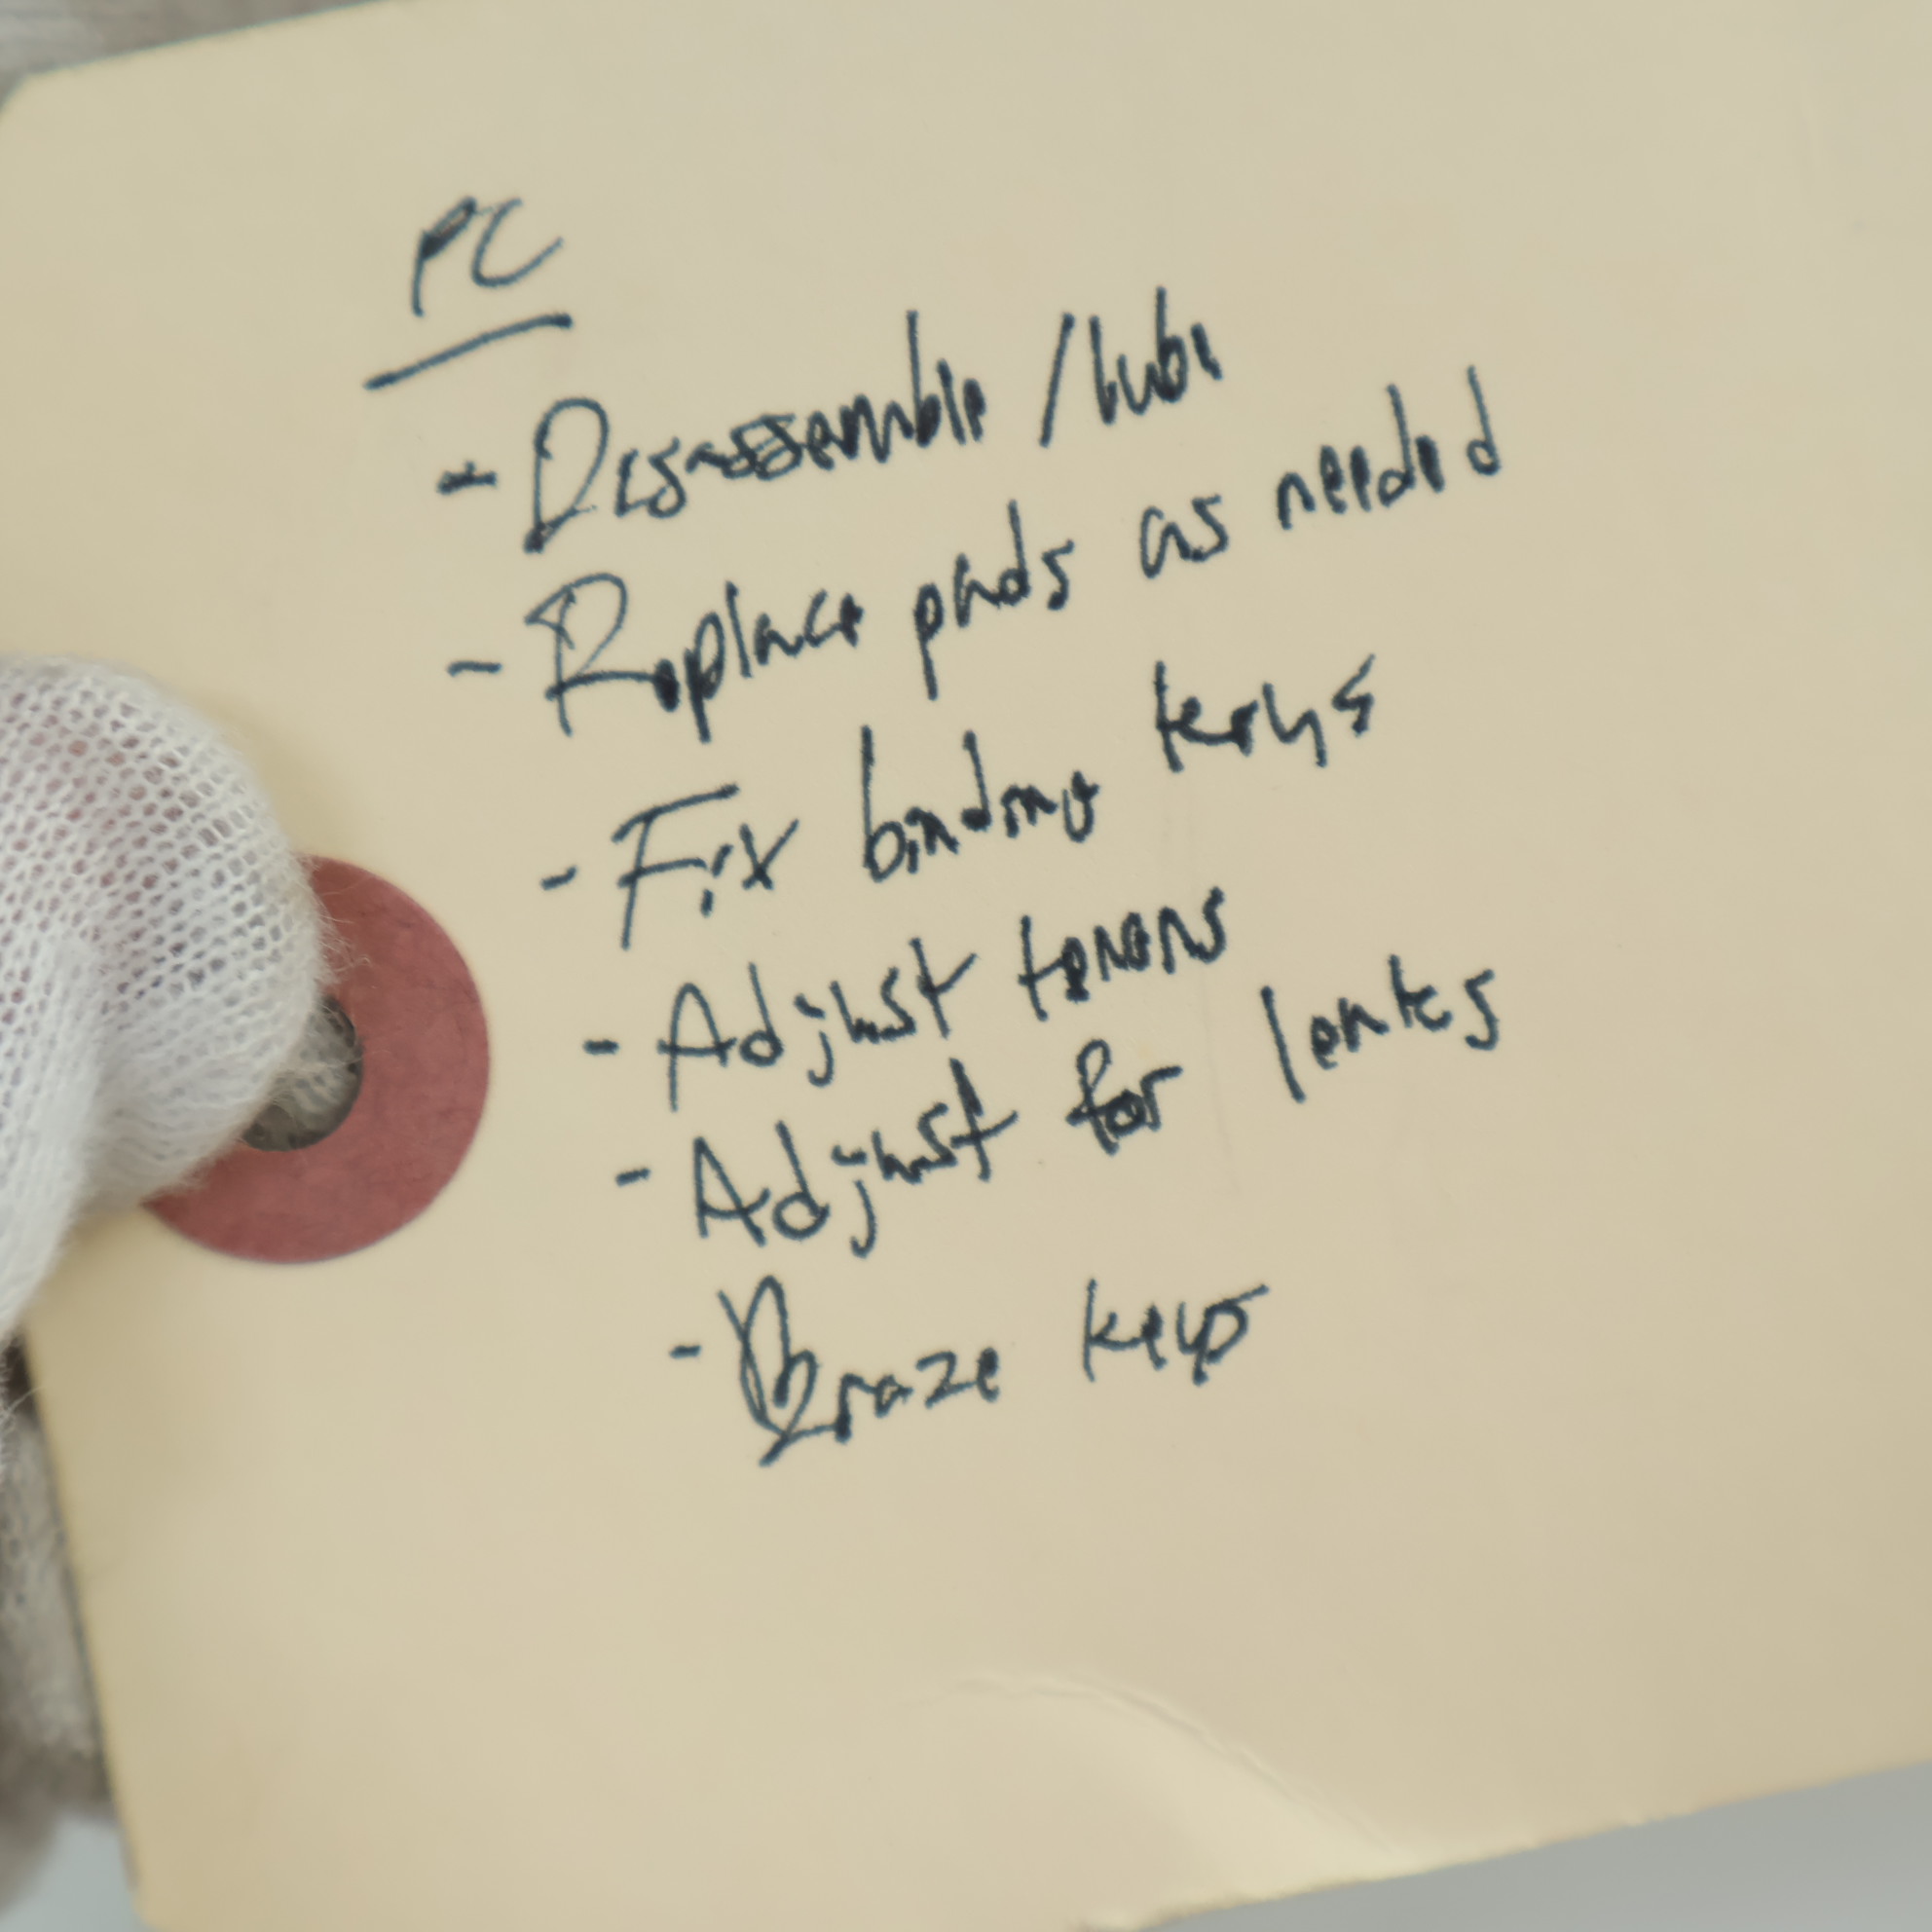 PC
- Disassemble / lube
- Replace pads as needed
- Fix binding keys
- Adjust tenons
- Adjust for leaks
- Braze keys